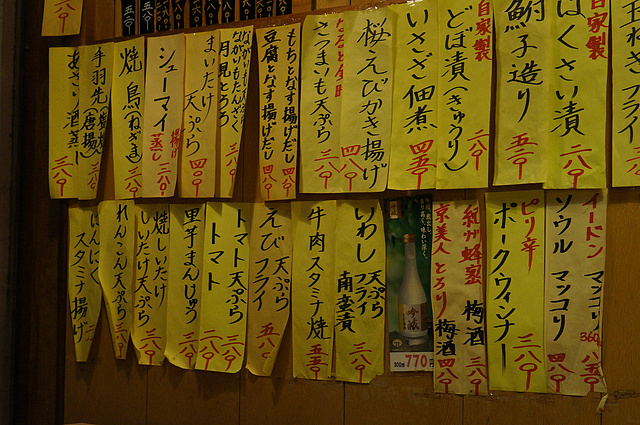 自家製
はくさい漬
二八〇
鮒子造り
五二〇
自家製
どぼ漬(きゅうり)
二八〇
いさざ佃煮
四五〇
桜えびかき揚げ
四八〇
さつまいも天ぷら
三八〇
もちとなす揚げだし
四八〇
豆腐となす揚げだし
四八〇
ながいもたんざく
月見とろろ
三八〇
まいたけ
天ぷら
四八〇
シューマイ
揚げ
蒸し
三八〇
焼鳥(ねぎま)
三八〇
手羽先
(唐揚)
三八〇
あさり酒蒸し
三八〇
イードン
マッコリ
360㎖
八五〇
ソウル
マッコリ
四八〇
ピリ辛
ポークウィンナー
三八〇
紀州蜂蜜
梅酒
三八〇
京美人とろり
梅酒
四八〇
吟醸
300㎖
770円
いわし
天ぷら
フライ
南蛮漬
三八〇
牛肉スタミナ焼
五五〇
えび
天ぷら
フライ
五八〇
トマト天ぷら
三八〇
トマト
二八〇
里芋まんじゅう
三八〇
焼しいたけ
しいたけ天ぷら
三八〇
れんこん天ぷら
三八〇
にんにく
スタミナ揚げ